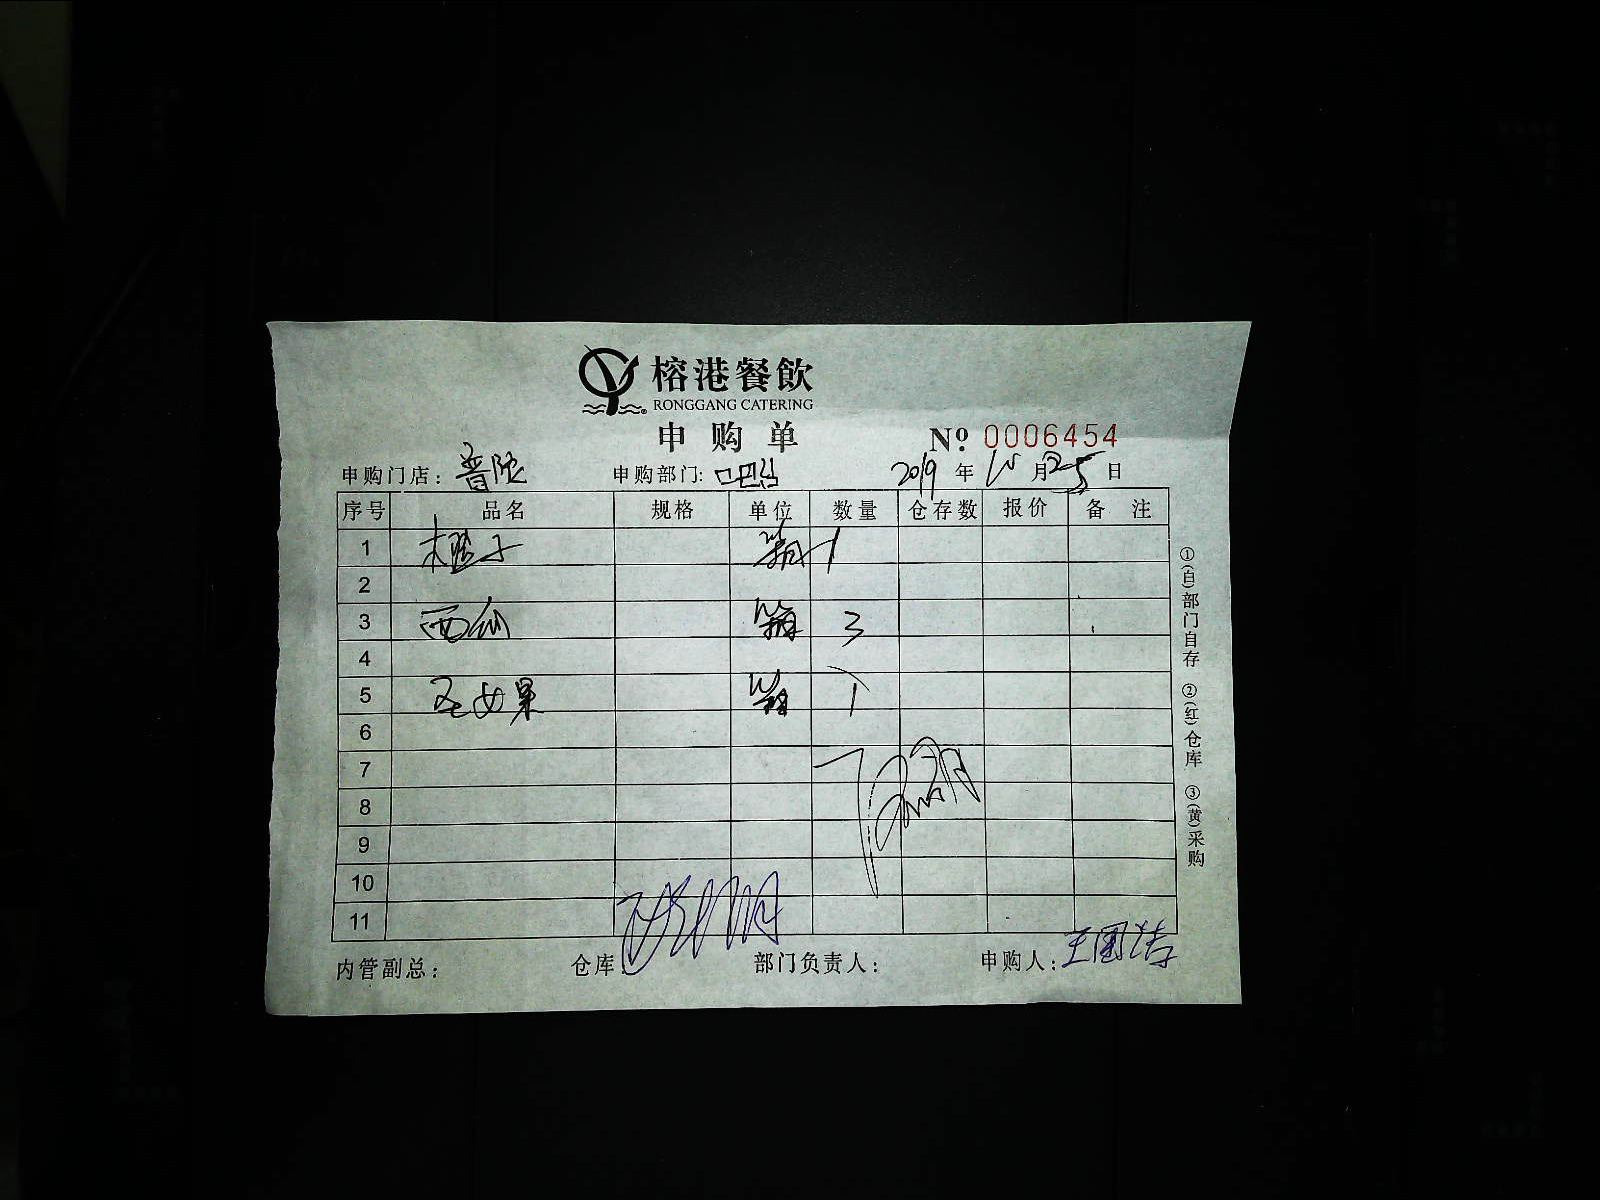 榕港餐飲
RONGGANG CATERING
申购单
№ 0006454
申购门店：普陀 申购部门：吧台 2019 年 10 月 25 日
序号 品名 规格 单位 数量 仓存数 报价 备注
1 橙子 箱 1
2
3 西瓜 箱 3
4
5 圣女果 箱 1
6
7
8
9
10
11
内管副总： 仓库： 部门负责人： 申购人：王国涛
①(白)部门自存 ②(红)仓库 ③(黄)采购